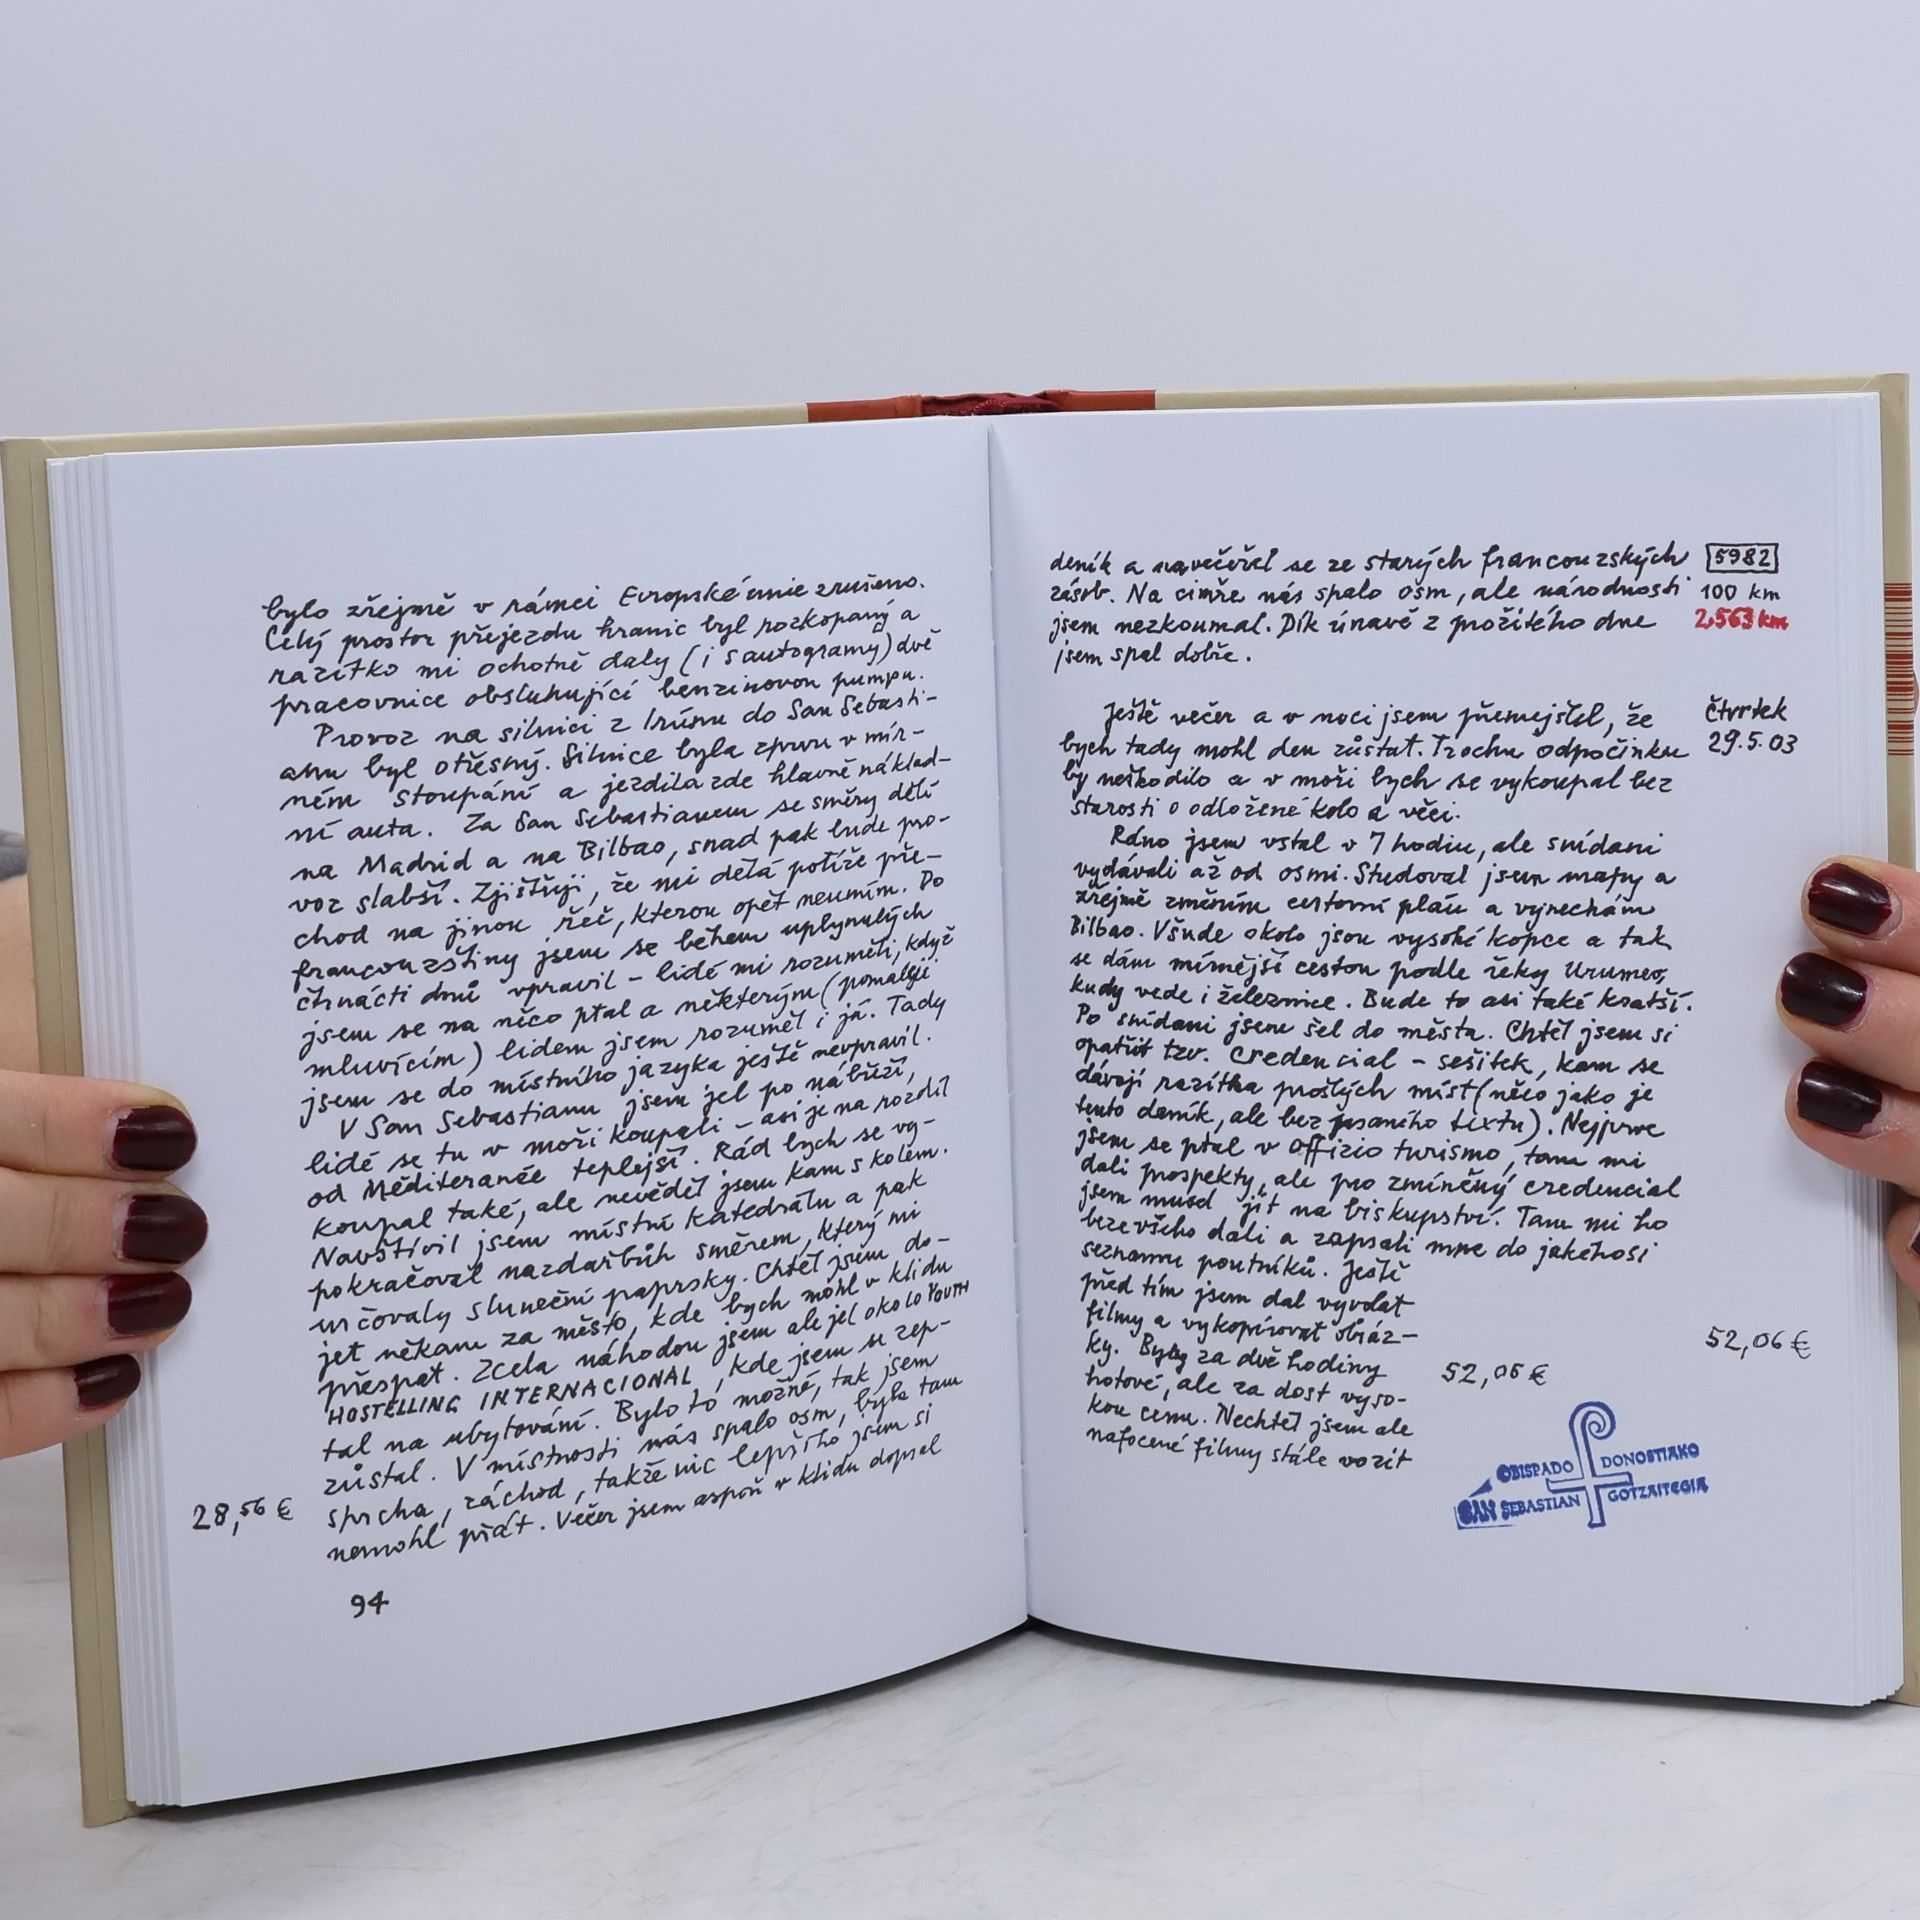 bylo zřejmě v rámci Evropské unie zrušeno.
Celý prostor přejezdu hranic byl rozkopaný a
razítko mi ochotně daly (i s autogramy) dvě
pracovnice obsluhující benzinovou pumpu.
Provoz na silnici z Irúnu do San Sebasti-
anu byl otřesný. Silnice byla zprvu v mír-
ném stoupání a jezdila zde hlavně náklad-
ní auta. Za San Sebastianem se směry dělí
na Madrid a na Bilbao, snad pak bude pro-
voz slabší. Zjišťuji, že mi dělá potíže pře-
chod na jinou řeč, kterou opět neumím. Do
francouzštiny jsem se během uplynulých
čtrnácti dnů vpravil - lidé mi rozuměli, když
jsem se na něco ptal a některým (pomaleji
mluvícím) lidem jsem rozuměl i já. Tady
jsem se do místního jazyka ještě nevpravil.
V San Sebastianu jsem jel po nábřeží,
lidé se tu v moři koupali - asi je na rozdíl
od Méditeranée teplejší. Rád bych se vy-
koupal také, ale nevěděl jsem kam s kolem.
Navštívil jsem místní katedrálu a pak
pokračoval nazdařbůh směrem, který mi
určovaly sluneční paprsky. Chtěl jsem do-
jet někam za město, kde bych mohl v klidu
přespat. Zcela náhodou jsem ale jel okolo YOUTH
HOSTELLING INTERNACIONAL, kde jsem se zep-
tal na ubytování. Bylo to možné, tak jsem
zůstal. V místnosti nás spalo osm, byla tam
28,56 € sprcha, záchod, takže nic lepšího jsem si
nemohl přát. Večer jsem aspoň v klidu dopsal
94
deník a navečeřel se ze starých francouzských 5982
zásob. Na cimře nás spalo osm, ale národnosti 100 km
jsem nezkoumal. Dík únavě z prožitého dne 2.563 km
jsem spal dobře.
Ještě večer a v noci jsem přemejšlel, že čtvrtek
bych tady mohl den zůstat. Trochu odpočinku 29.5.03
by neškodilo a v moři bych se vykoupal bez
starosti o odložené kolo a věci.
Ráno jsem vstal v 7 hodin, ale snídani
vydávali až od osmi. Studoval jsem mapy a
zřejmě změním cestovní plán a vynechám
Bilbao. Všude okolo jsou vysoké kopce a tak
se dám mírnější cestou podle řeky Urumeo,
kudy vede i železnice. Bude to asi také kratší.
Po snídani jsem šel do města. Chtěl jsem si
opatřit tzv. credencial - sešitek, kam se
dávají razítka prošlých míst (něco jako je
tento deník, ale bez psaného textu). Nejprve
jsem se ptal v Offizio turismo, tam mi
dali prospekty, ale pro zmíněný credencial
jsem musel jít na biskupství. Tam mi ho
beze všeho dali a zapsali mne do jakéhosi
seznamu poutníků. Ještě
před tím jsem dal vyvolat
filmy a vykopírovat obráz-
ky. Byly za dvě hodiny 52,06 €
hotové, ale za dost vyso- 52,06 €
kou cenu. Nechtěl jsem ale
nafocené filmy stále vozit
OBISPADO DONOSTIAKO
SAN SEBASTIAN GOTZAITEGIA